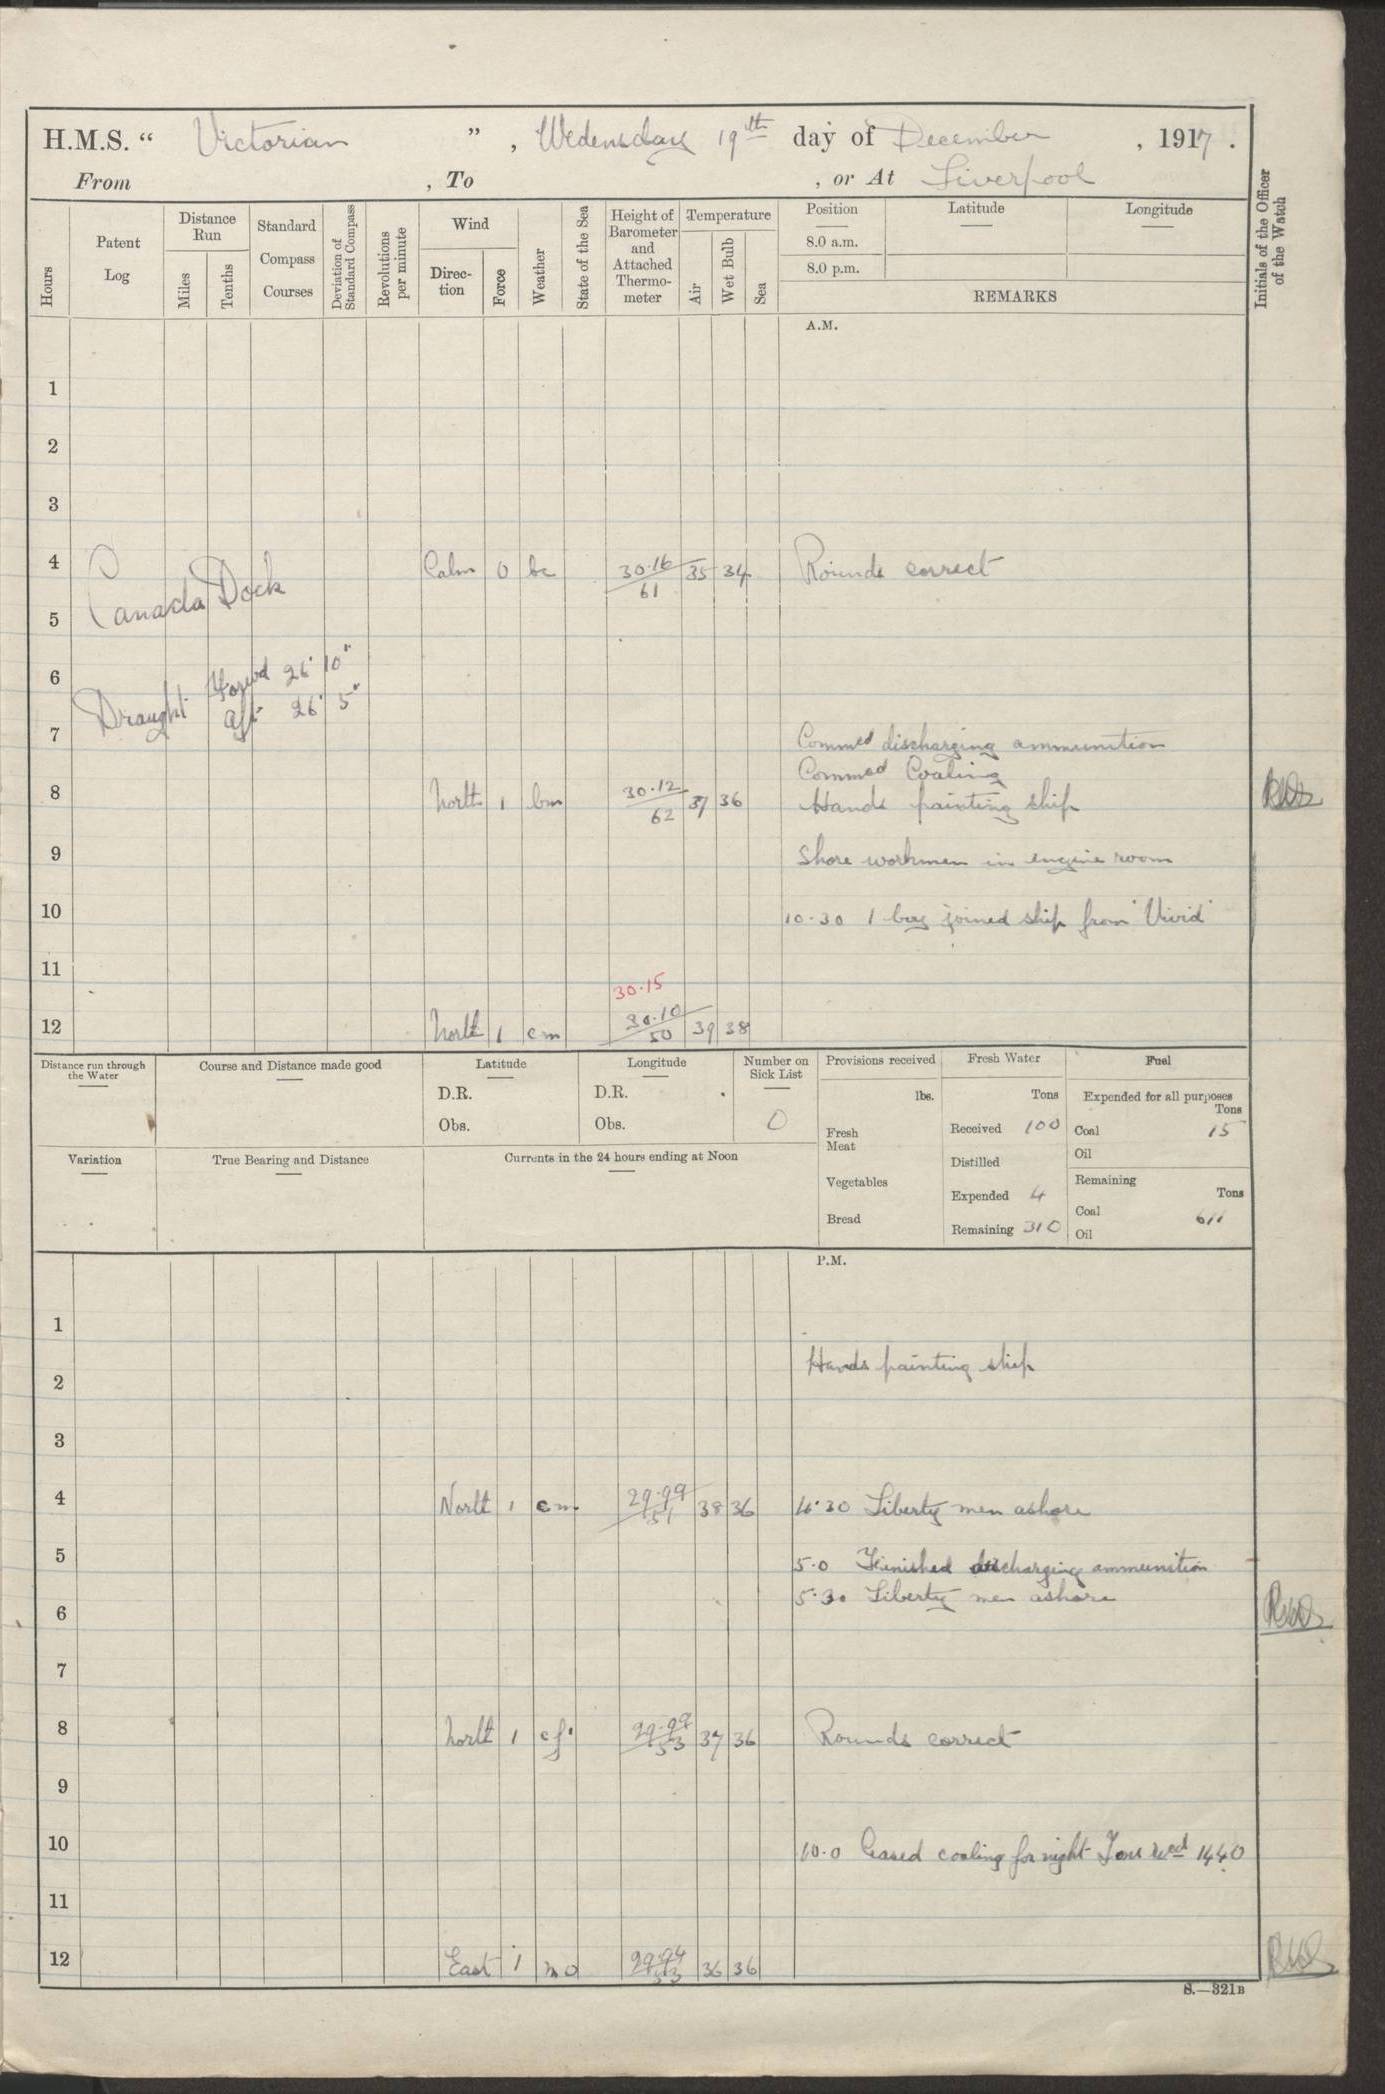 H.M.S. “ Victorian ”, Wedensday 19th day of December, 1917.
From , To , or At Liverpool
Hours
Patent Log
Distance Run
Miles
Tenths
Standard Compass Courses
Deviation of Standard Compass
Revolutions per minute
Wind
Direc-tion
Force
Weather
State of the Sea
Height of Barometer and Attached Thermo-meter
Temperature
Air
Wet Bulb
Sea
Position
8.0 a.m.
8.0 p.m.
Latitude
Longitude
REMARKS
Initials of the Officer of the Watch
A.M.
1
2
3
4 Calm 0 bc 30.16 61 35 34 Rounds correct
Canada Dock
5
6
Draught Forwd 26' 10"
Aft 26' 5"
7
Commed discharging ammunition
Commed Coaling
8 North 1 bm 30.12 62 37 36 Hands painting ship
9 Shore workmen in engine room
10 10.30 1 boy joined ship from "Vivid"
11
30.15
12 North 1 cm 30.10 50 39 38
Distance run through the Water
Course and Distance made good
Latitude
D.R.
Obs.
Longitude
D.R.
Obs.
Number on Sick List
0
Provisions received
lbs.
Fresh Meat
Vegetables
Bread
Fresh Water
Tons
Received 100
Distilled
Expended 4
Remaining 310
Fuel
Expended for all purposes
Tons
Coal 15
Oil
Remaining
Tons
Coal 611
Oil
Variation
True Bearing and Distance
Currents in the 24 hours ending at Noon
P.M.
1
Hands painting ship
2
3
4 North 1 cm 29.99 51 38 36 4.30 Liberty men ashore
5 5.0 Finished discharging ammunition
5.30 Liberty men ashore
6
7
8 North 1 cf 29.99 53 37 36 Rounds correct
9
10 10.0 Ceased coaling for night Tons recd 1440
11
12 East 1 mo 29.94 53 36 36
S.—321B